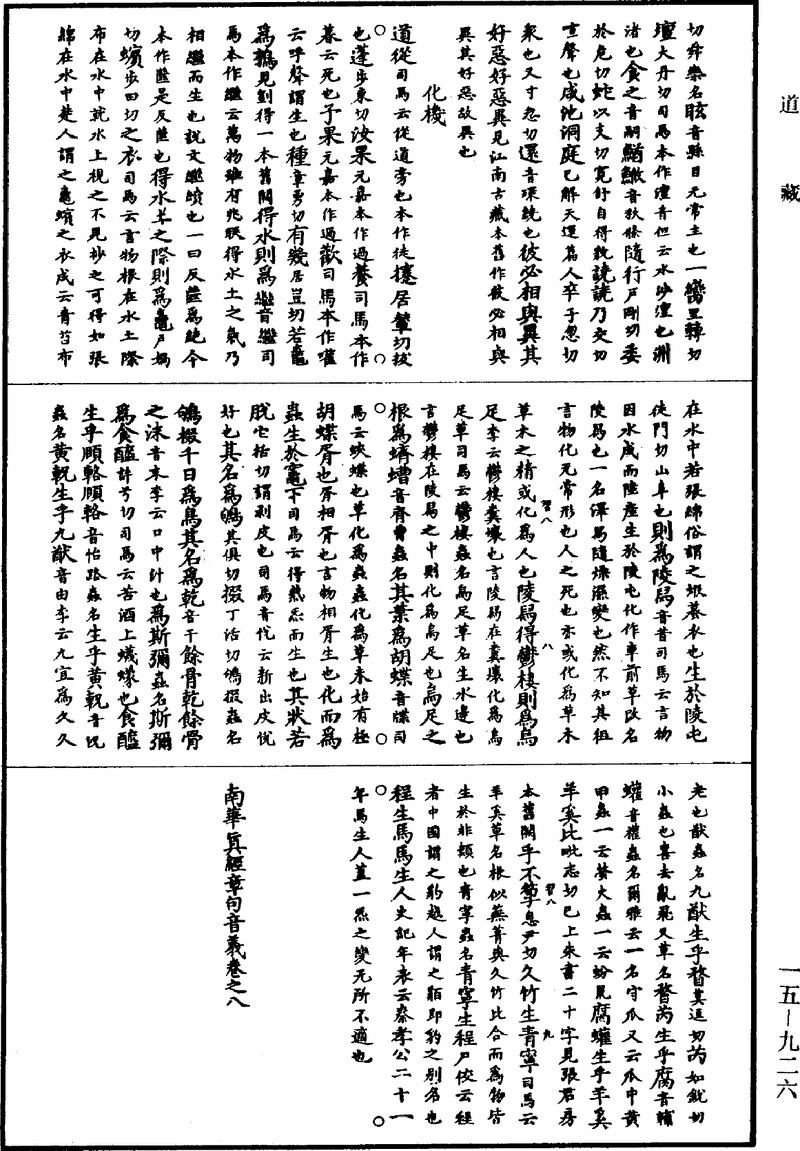 道藏
切舜樂名眩音縣目无常主也一臠里轉切
壇大丹切司馬本作澶音但云水沙澶也洲
渚也食之音嗣鰌鰷音秋條隨行戶剛切委
於危切蛇以支切寬舒自得皃譊譊乃交切
喧聲也咸池洞庭已解天運篇人卒子忽切
衆也又寸忽切還音環繞也彼必相與異其
好惡好惡異見江南古藏本舊作彼必相與
異其好惡故異也
化機
道從司馬云從道旁也本作徒攓居輦切拔
也蓬步東切汝果元嘉本作過養司馬本作
暮云死也予果元嘉本作過歡司馬本作嚾
云呼聲謂生也種章勇切有幾居豈切若鼃
爲鶉見劉得一本舊闕得水則爲㡭音繼司
馬本作繼云萬物雖有兆眹得水土之氣乃
相繼而生也說文繼續也一曰反㡭爲絕今
本作㡭是反㡭也得水土之際則爲鼃戶媧
切蠙步田切之衣司馬云言物根在水土際
布在水中就水上視之不見抄之可得如張
綿在水中楚人謂之鼃蠙之衣成云青苔布
在水中若張綿俗謂之蝦蟇衣也生於陵屯
徒門切山阜也則爲陵舄音昔司馬云言物
因水成而陸產生於陵屯化作車前草改名
陵舄也一名澤舄隨燥濕變也然不知其祖
言物化无常形也人之死也亦或化爲草木
草木之精或化爲人也陵舄得鬱棲則爲烏
足李云鬱棲糞壤也言陵舄在糞壤化爲烏
足草司馬云鬱棲蟲名烏足草名生水邊也
言鬱棲在陵舄之中則化爲烏足也烏足之
根爲蠐螬音齊曹蟲名其葉爲胡蝶音牒司
馬云蛺蝶也草化爲蟲蟲化爲草未始有極
胡蝶胥也胥相胥也言物相胥生也化而爲
蟲生於竈下司馬云得熱炁而生也其狀若
脫它括切謂剥皮也司馬音悅云新出皮悅
好也其名爲鴝其俱切掇丁活切鴝掇蟲名
鴝掇千日爲鳥其名爲乾音干餘骨乾餘骨
之沫音末李云口中汁也爲斯彌蟲名斯彌
爲食醯許兮切司馬云苦酒上蠛蠓也食醯
生乎頤輅頤輅音怡路蟲名生乎黄軦音況
蟲名黄軦生乎九猷音由李云九宜爲久久
老也猷蟲名九猷生乎瞀莫逗切芮如銳切
小蟲也喜去亂飛又草名瞀芮生乎腐音輔
蠸音權蟲名爾雅云一名守瓜又云瓜中黄
甲蟲一云螢火蟲一云蚡鼠腐蠸生乎羊奚
羊奚比毗志切已上來書二十字見張君房
本舊闕乎不箰息尹切久竹生青寧司馬云
羊奚草名根似蕪菁與久竹比合而爲物皆
生於非類也青寧蟲名青寧生程尸佼云程
者中國謂之豹越人謂之貊即豹之別名也
程生馬馬生人史記年表云秦孝公二十一
年馬生人蓋一炁之變无所不適也
南華真經章句音義卷之八
一五－九二六